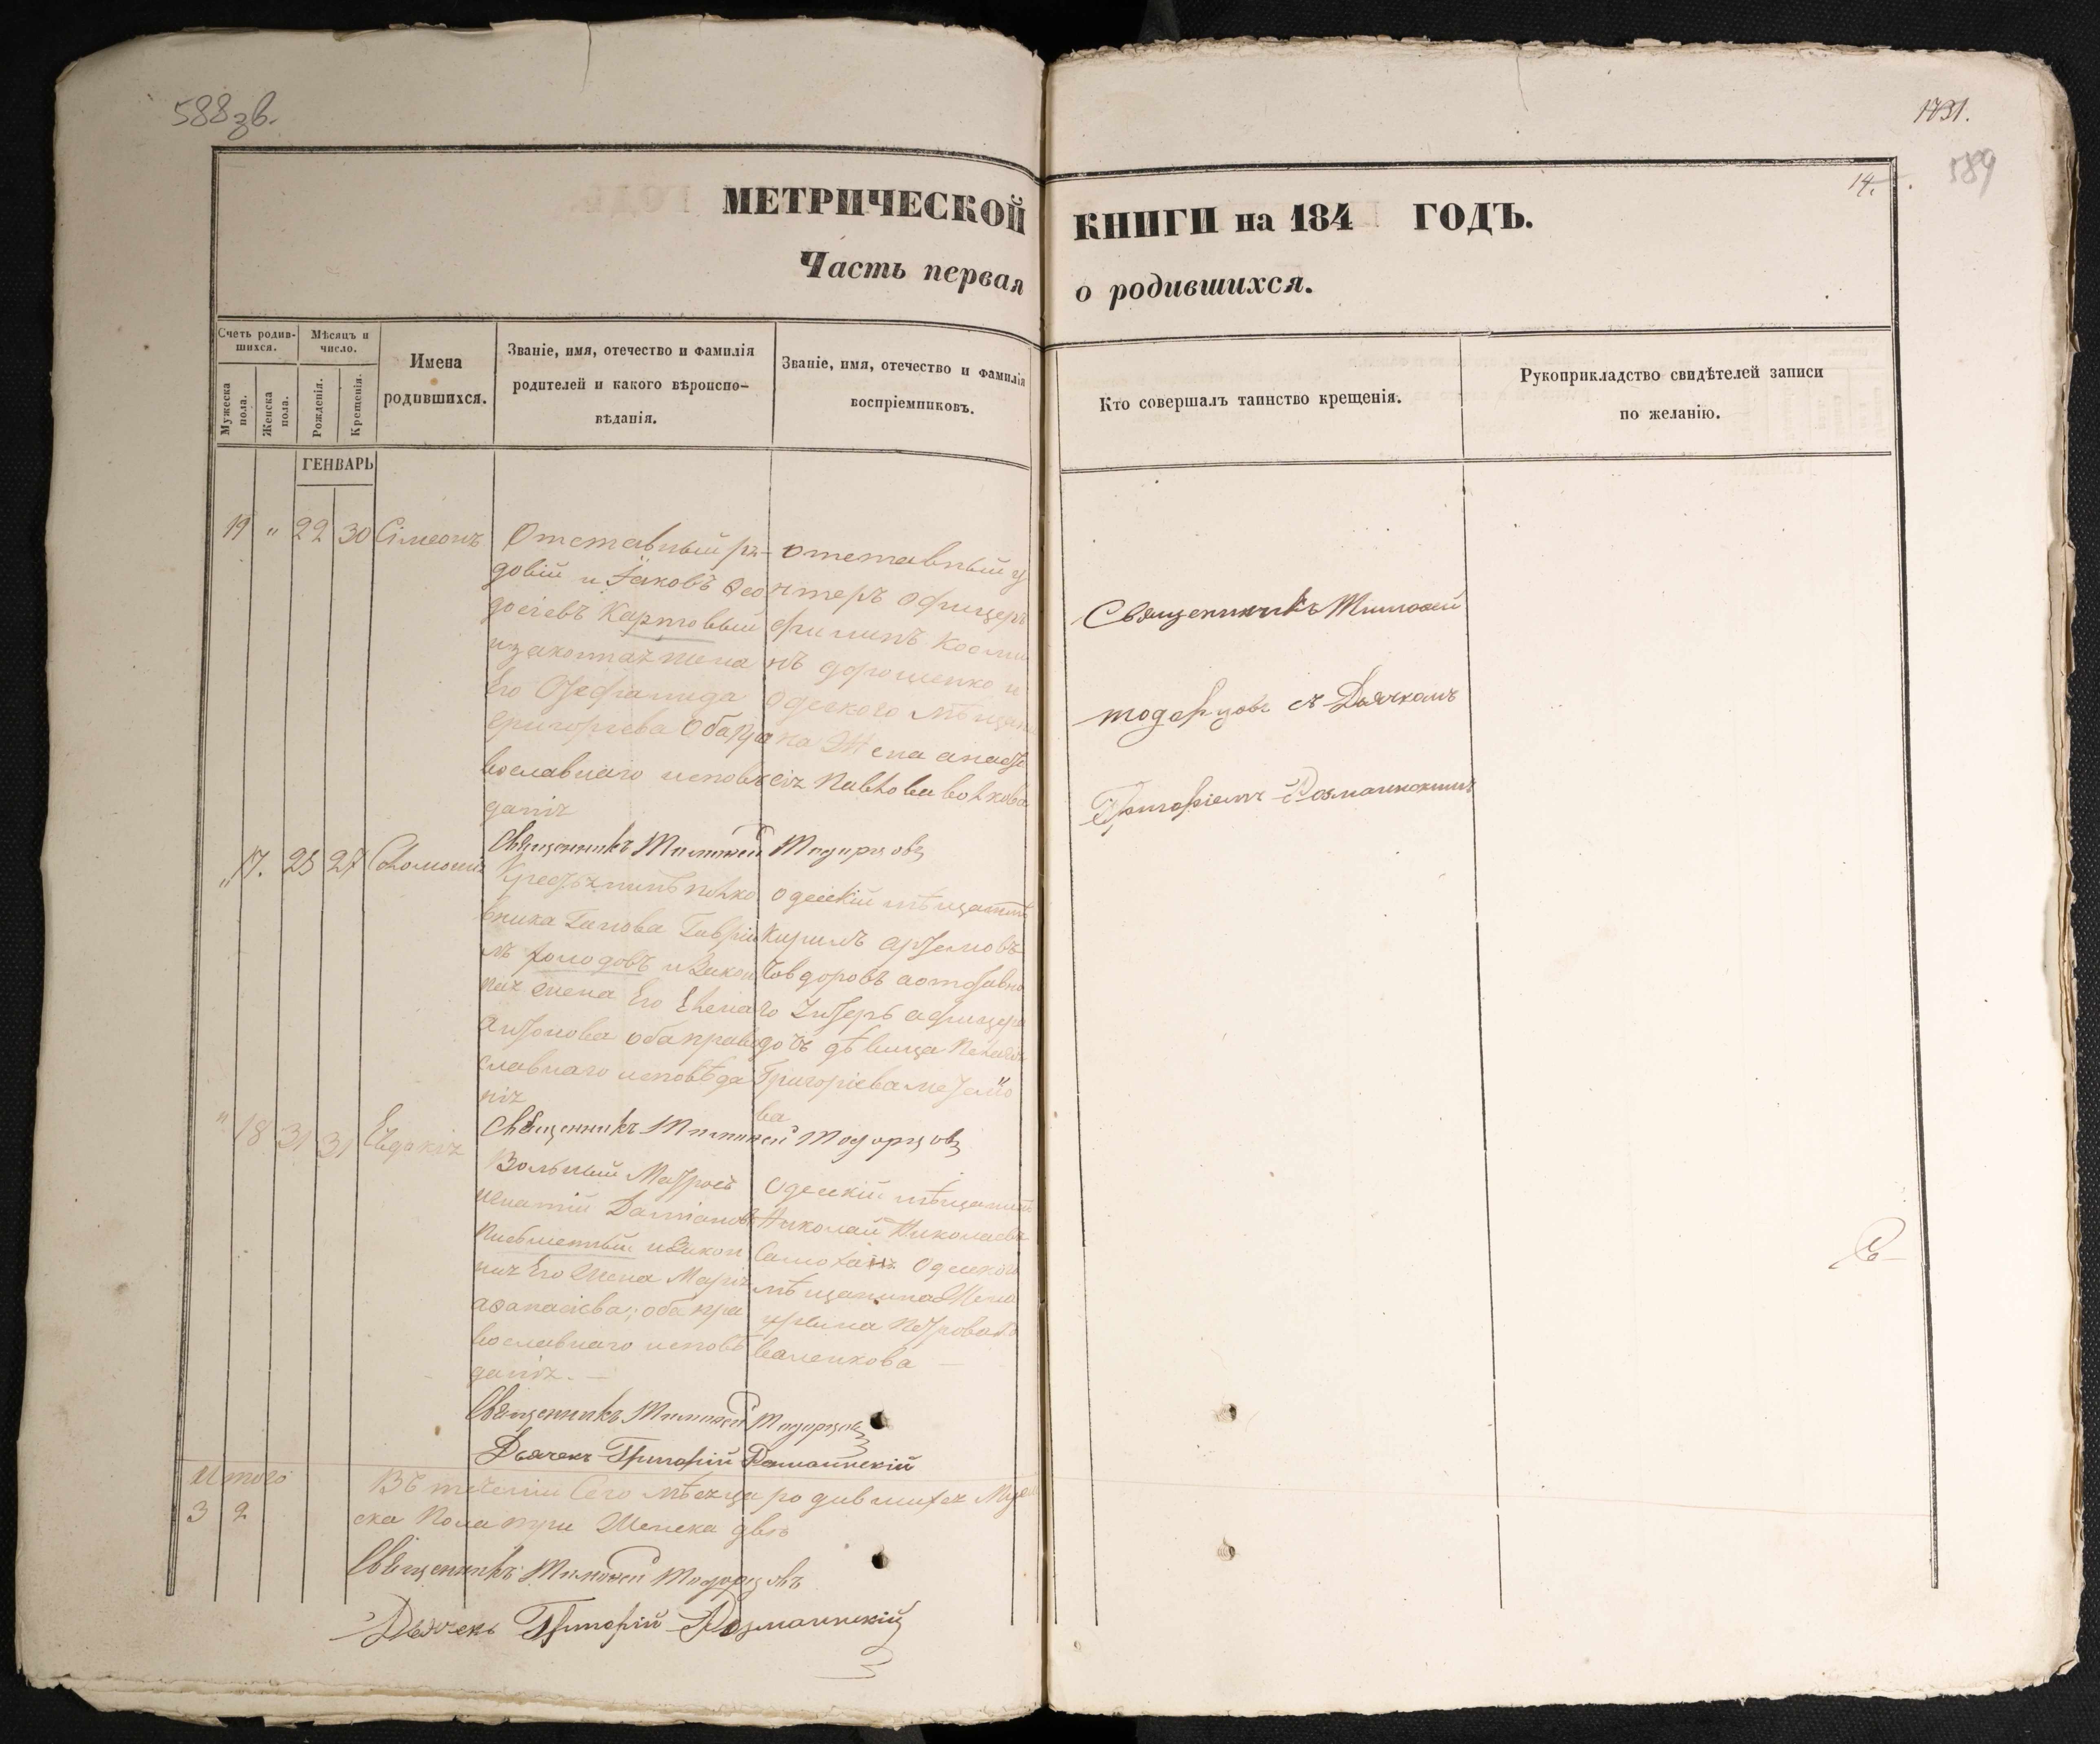 588 зв.
1731.
589
14.
МЕТРИЧЕСКОЙ КНИГИ на 184 ГОДЪ.
Часть первая о родившихся.
Счетъ родившихся.
Мужеска пола.
Женска пола.
Мѣсяцъ и число.
Рожденія.
Крещенія.
Имена родившихся.
Званіе, имя, отечество и фамилія родителей и какого вѣроиспо-
вѣданія.
Званіе, имя, отечество и фамилія
воспріемниковъ.
Кто совершалъ таинство крещенія.
Рукоприкладство свидѣтелей записи
по желанію.
ГЕНВАРЬ
19 " 22 30 Сімеонъ
Отставный ря-
довій и Іаковъ Ѳео
досіевъ Картовый
изаконная жена
Его
григорьева Оба пра
вославнаго исповѣ
данія
отставный у
нтеръ офицеръ
филипъ Косми
нъ дорошенко и
Одескаго мѣщан
ина Жена анаста
сія Павлова волкова
Священникъ Тимоѳей
тодорцовъ съ Дьячкомъ
Григоріемъ Розманинскимъ
Священникъ Тимоѳей Тодорцовъ
" 17. 25 27 Соломонія
Крестьянинъ полко
вника Гавріи
лъ холодовъ и Закон
ная жена Его Елена
Антонова оба право
славнаго исповѣда
нія
Одескій мѣщанинъ
Кирилъ артемовъ
аотставно
го Унтеръ офицера
дочь дѣвица Пелагія
Григоріева
ва
Священникъ Тимоѳей Тодорцовъ
" 18 31 31 Евдокія
Вольный Матросъ
игнатій Даміановъ
Письменный изакон
ная Его Жена Марія
аѳанасіева, оба пра
вославнаго исповѣ
данія. —
Одескій мѣщанинъ
Николай Николаевъ
Одескаго
мѣщанина Жена
ирина Петрова
валенкова —
Священникъ Тимоѳей Тодорцовъ
Дьячекъ Григорій Розманинскій
Итого
3 2
Въ теченіи Сего мѣсяца родившихся Муже
ска Пола три Женска двѣ
Священникъ Тимоѳей Тодорцовъ
Дьячекъ Григорій Розманинскій